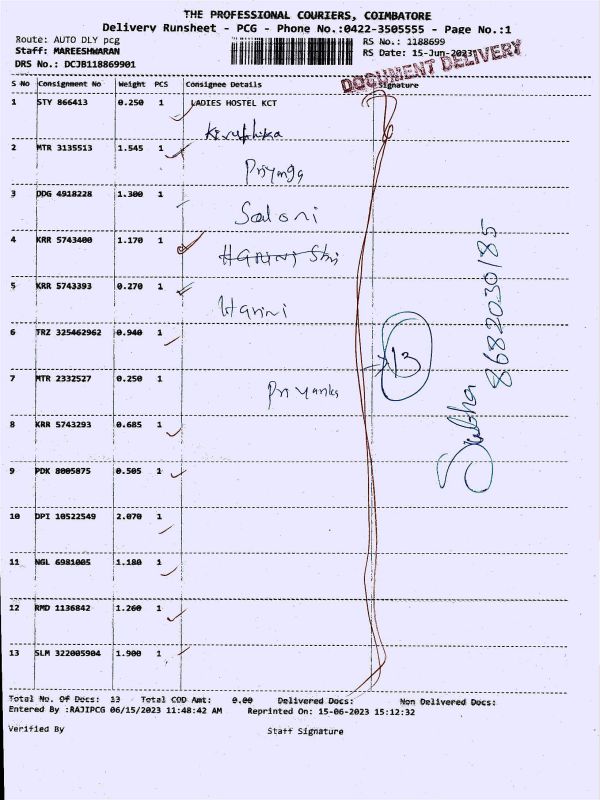 THE PROFESSIONAL COURIERS, COIMBATORE
Delivery Runsheet - PCG - Phone No.:0422-3505555 - Page No.:1
Route: AUTO DLY pcg RS No.: 1188699
Staff: MAREESHWARAN RS Date: 15-Jun-2023
DRS No.: DCJB118869901
DOCUMENT DELIVERY
S No Consignment No Weight PCS Consignee Details Signature
1 STY 866413 0.250 1 LADIES HOSTEL KCT
Kiruthika
2 MTR 3135513 1.545 1
Priyanga
3 DDG 4918228 1.300 1
Saloni
4 KRR 5743400 1.170 1
Harini Shri
5 KRR 5743393 0.270 1
Harini
6 TRZ 325462962 0.940 1
13
7 MTR 2332527 0.250 1
Priyanka
8 KRR 5743293 0.685 1
9 PDK 8005875 0.505 1
10 DPI 10522549 2.070 1
11 NGL 6981005 1.180 1
12 RMD 1136842 1.260 1
13 SLM 322005904 1.900 1
Subha
8682030185
Total No. Of Docs: 13 Total COD Amt: 0.00 Delivered Docs: Non Delivered Docs:
Entered By :RAJIPCG 06/15/2023 11:48:42 AM Reprinted On: 15-06-2023 15:12:32
Verified By Staff Signature